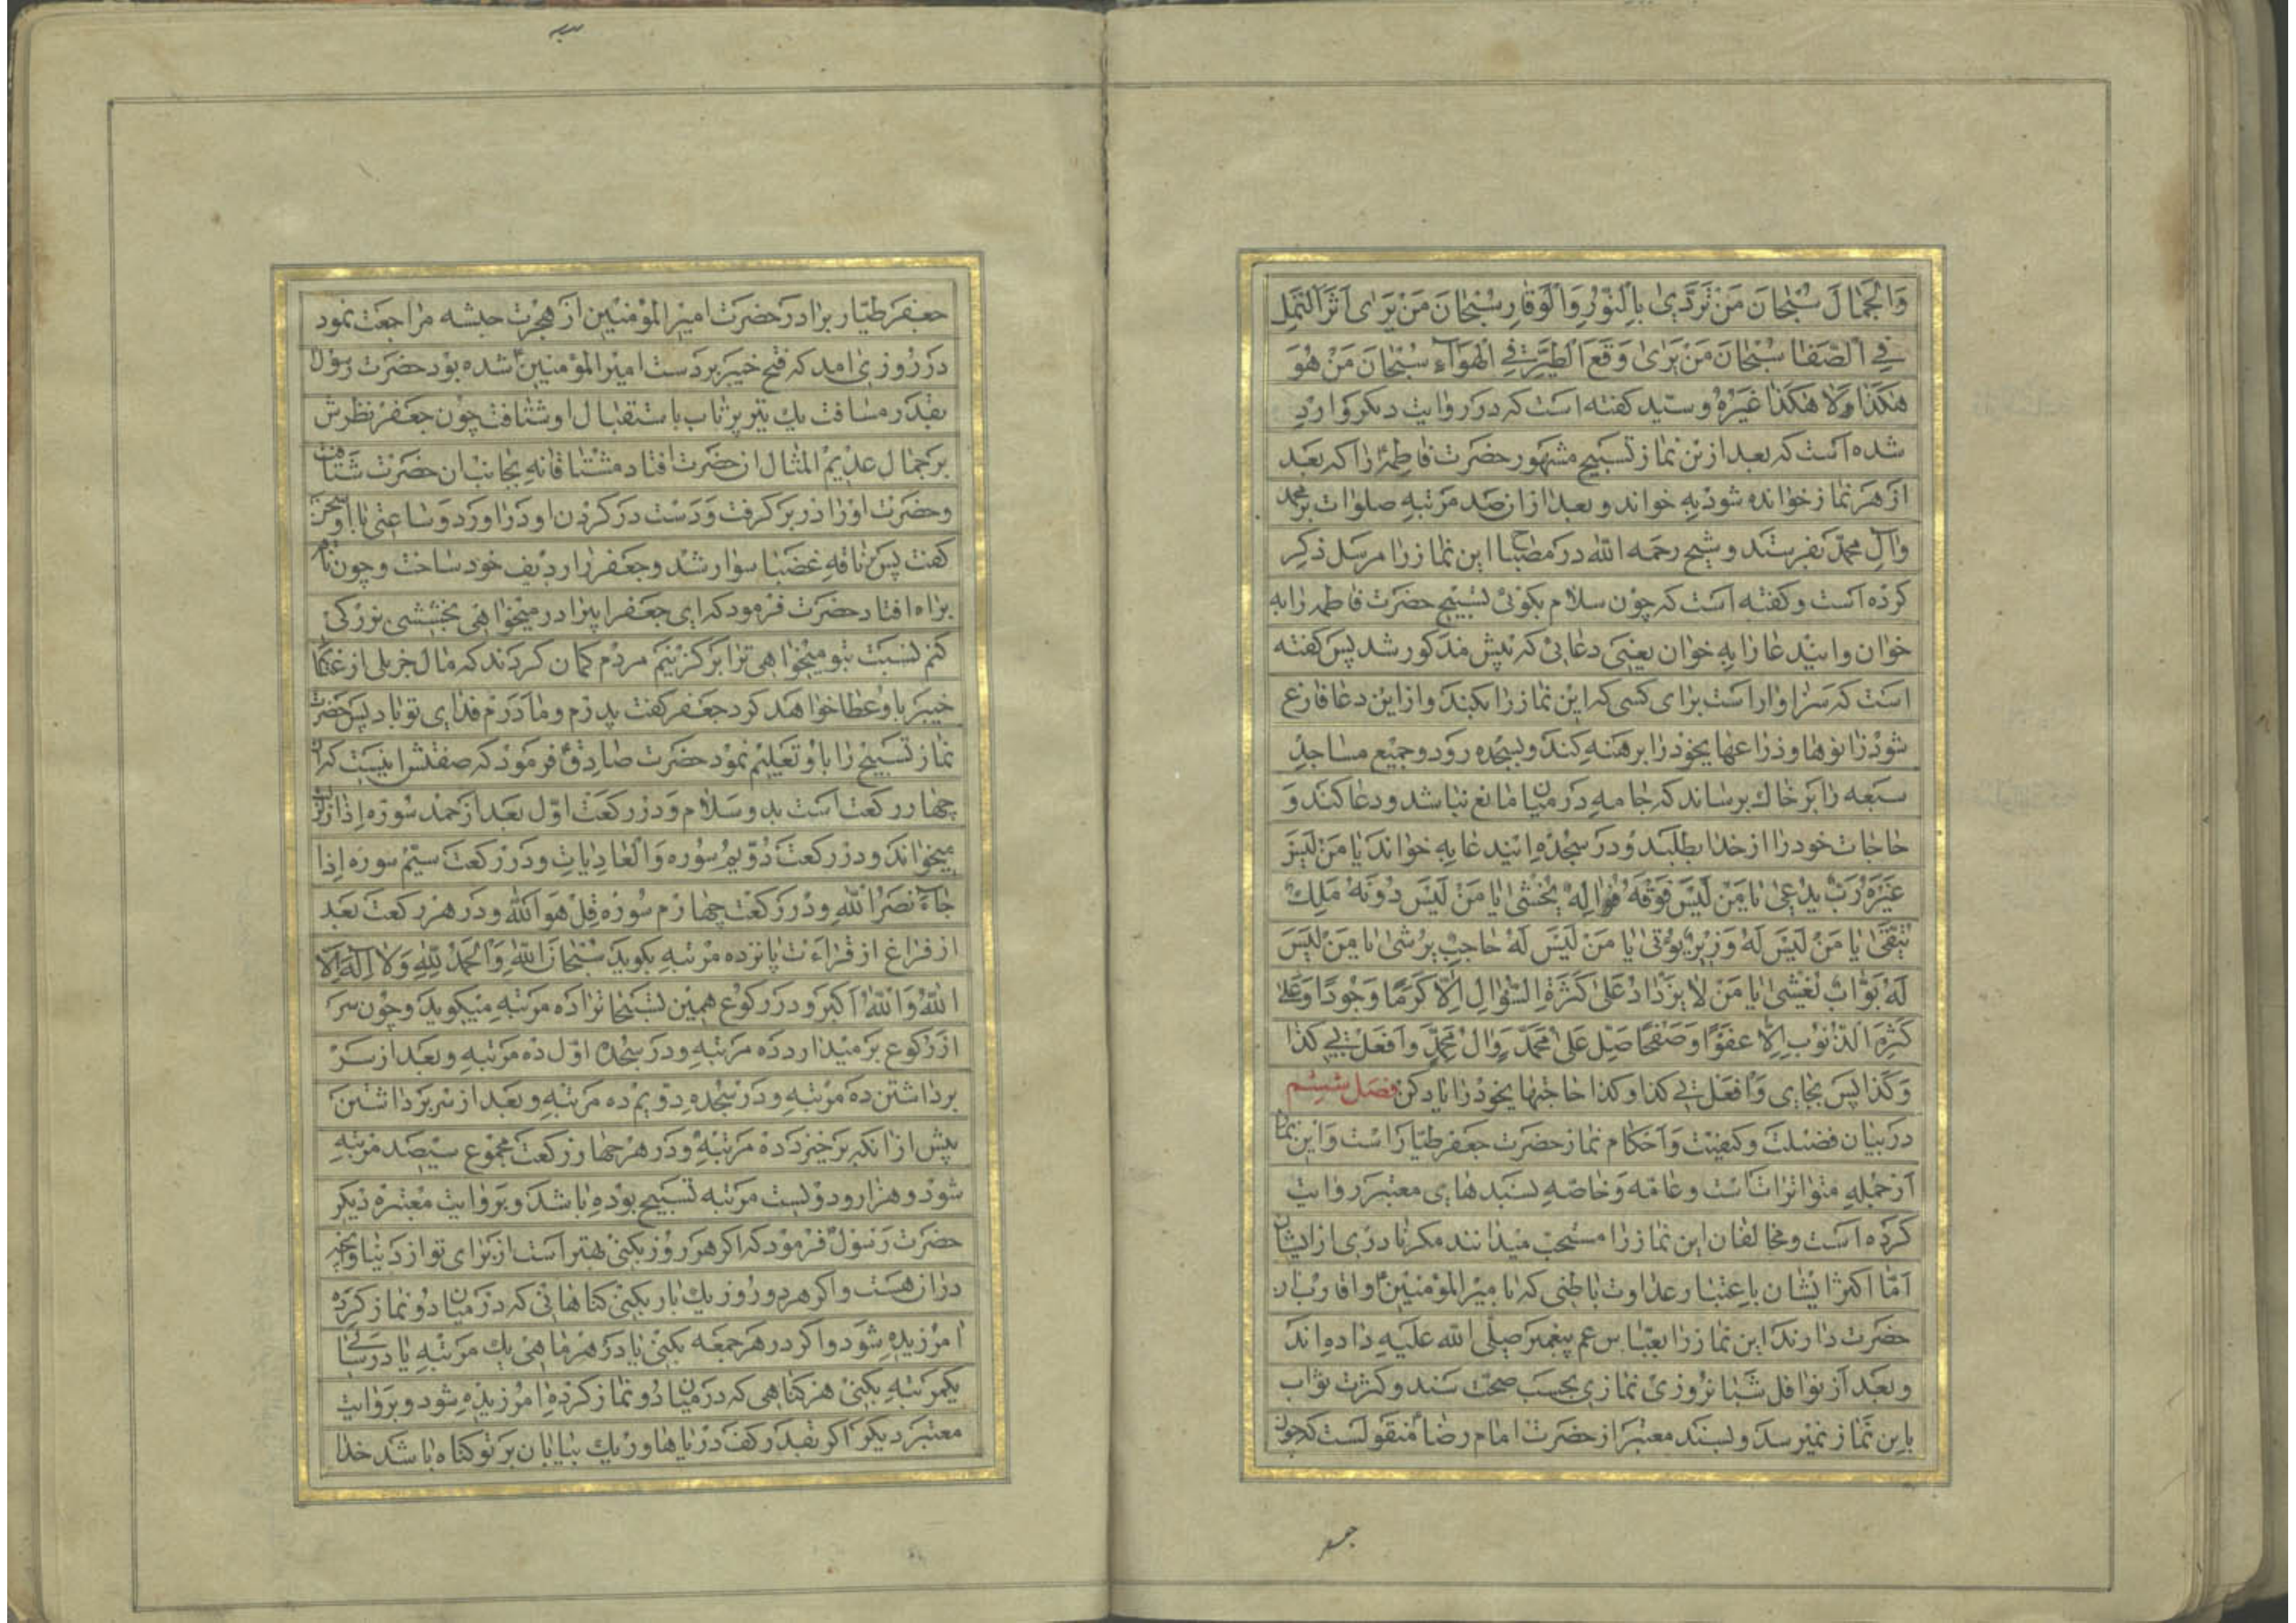 وَالْجَمٰالَ سُبْحٰانَ مَنْ تَرَدّٰي بِالنُّورِ وَالْوَقٰارِ سُبْحٰانَ مَنْ يَرٰى اَثَرَ النَّمْلِ
فِي الصَّفٰا سُبْحٰانَ مَنْ يَرٰى وَقَعَ الطَّيْرِ فِي الْهَوٰاءِ سُبْحٰانَ مَنْ هُوَ
هٰكَذٰا وَلٰا هٰكَذٰا غَيْرُهُ و سیّد کفته است که در روایت دیکر وارد
شده است که بعد از ین نماز تسبیح مشهور حضرت فاطمهٔ را که بعد
از هر نماز خوانده شود به خواند و بعد از ان صد مرتبه صلوات بر محمد
وال محمّد بفرستد و شیح رحمه الله در مصباح این نماز را مرسل ذکر
کرده است و کفته است که چون سلام بکوئی تسبیح حضرت فاطمه را به
خوان و ایندعا را به خوان یعنی دعائی که پیش مذکور شد پس کفته
است که سزاوار است برای کسی که این نماز را بکند و از این دعا فارغ
شود زانوها و ذراعهایخود را برهنه کند و بسجده رود و جمیع مساجد
سبعه را بر خاك برساند که جامه در میان مانع نباشد و دعا کند و
حاجات خود را از خدا بطلبد و در سجده ایندعا به خواند یٰا مَنْ لَيْسَ
غَيْرَهُ رَبٌّ يُدْعىٰ يٰا مَنْ لَيْسَ فَوْقَهُ اِلٰهٌ يُخْشىٰ يٰا مَنْ لَيْسَ دُونَهُ مَلِكٌ
يُتَّقىٰ يٰا مَنْ لَيْسَ لَهُ وَزِيرٌ يُؤْتىٰ يٰا مَنْ لَيْسَ لَهُ حٰاجِبٌ يُرْشىٰ يٰا مَنْ لَيْسَ
لَهُ بَوّٰابٌ يُغْشىٰ يٰا مَنْ لٰا يَزْدٰادُ عَلىٰ كَثْرَةِ السُّؤٰالِ اِلّٰا كَرَمًا وَجُودًا وَعَلىٰ
كَثْرَةِ الذُّنُوبِ اِلّٰا عَفْوًا وَصَفْحًا صَلِّ عَلىٰ مُحَمَّدٍ وَالِ مُحَمَّدٍ وَافْعَلْ بِي كَذٰا
وَكَذٰا پس بجای وَافْعَلْ بِي کذا وکذا حاجتهایخود را یاد کن فصل ششم
در بیان فضیلت و کیفیت و احکام نماز حضرت جعفر طیّار است و این نماز
از جمله متواترات است و عامّه و خاصّه بسندهای معتبر روایت
کرده است و مخالفان این نماز را مستحب میدانند مکر نادری از ایشان
امّا اکثر ایشان باعتبار عداوت باطنی که با امیر المؤمنین و اقارب ان
حضرت دارند این نماز را بعبّاس عم پیغمبر صلّی الله علیه داده اند
و بعد از نوافل شبانروزی نمازی بحسب صحّت سند و کثرت ثواب
باین نماز نمیرسد و بسند معتبر از حضرت امام رضا منقولست که چون
جعفر
جعفر طیّار برادر حضرت امیر المؤمنین از هجرت حبشه مراجعت نمود
در روزی امد که فتح خیبر بر دست امیر المؤمنین شده بود حضرت رسول
بقدر مسافت یك تیر پرتاب باستقبال او شتافت چون جعفر نظرش
بر جمال عدیم المثال ان حضرت افتاد مشتاقانه بجانب ان حضرت شتافت
و حضرت او را در بر کرفت و دست در کردن او در اورد و ساعتی با او سخن
کفت پس بناقه غضبا سوار شد و جعفر را ردیف خود ساخت و چون ناقه
براه افتاد حضرت فرمود که ای جعفر ایبرادر میخواهی بخششی بزرکی
کنم نسبت بتو میخواهی ترا برکزینم مردم کمان کردند که مال جزیلی از غنایم
خیبر باو عطا خواهد کرد جعفر کفت پدرم و مادرم فدای تو باد پس حضرت
نماز تسبیح را باو تعلیم نمود حضرت صادق فرمود که صفتش اینست که ان
چهار رکعت است بدو سلام و در رکعت اوّل بعد از حمد سوره اذا زلزلت
میخواند و در رکعت دویم سوره والعادیات و در رکعت سیّم سوره اذا
جاء نصر الله و در رکعت چهارم سوره قل هو الله و در هر رکعت بعد
از فراغ از قراءت پانزده مرتبه بکوید سُبْحٰانَ اللهِ وَالْحَمْدُ لِلّٰهِ وَلٰا اِلٰهَ اِلَّا
اللهُ وَاللهُ اَكْبَر و در رکوع همین تسبیحات را ده مرتبه میکوید و چون سر
از رکوع بر میدارد ده مرتبه و در سجده اوّل ده مرتبه و بعد از سر
برداشتن ده مرتبه و در سجده دویم ده مرتبه و بعد از سر برداشتن
پیش از انکه بر خیزد ده مرتبه و در هر چهار رکعت مجموع سیصد مرتبه
شود و هزار و دویست مرتبه تسبیح بوده باشد و بروایت معتبره دیکر
حضرت رسول فرمود که اکر هر روز بکنی بهتر است از برای تو از دنیا و انچه
دران هست و اکر هر دو روز یك بار بکنی کناهانی که در میان دو نماز کرده
امرزیده شود و اکر در هر جمعه بکنی یا در هر ماهی یك مرتبه یا در سالی
یکمرتبه بکنی هر کناهی که در میان دو نماز کرده امرزیده شود و بروایت
معتبر دیکر اکر بقدر کف دریاها و ریك بیابان بر تو کناه باشد خدا